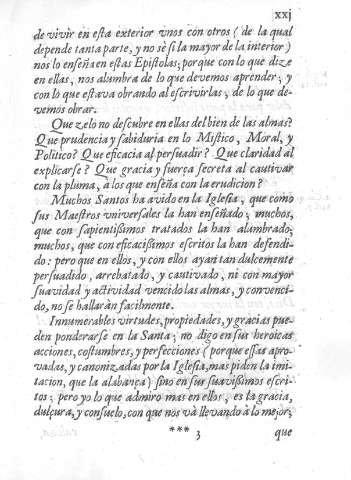 xxj
de vivir en esta exterior vnos con otros ( de la qual
depende tanta parte, y no sè si la mayor de la interior )
nos lo enseña en estas Epistolas; porque con lo que dize
en ellas, nos alumbra de lo que devemos aprender, y
con lo que estava obrando al escrivirlas, de lo que de-
vemos obrar.
Que zelo no descubre en ellas del bien de las almas?
Que prudencia y sabiduria en lo Mistico, Moral, y
Politico? Que eficacia al persuadir? Que claridad al
explicarse? Que gracia y fuerça secreta al cautivar
con la pluma, à los que enseña con la erudicion?
Muchos Santos ha avido en la Iglesia, que como
sus Maestros vniversales la han enseñado; muchos,
que con sapientissimos tratados la han alumbrado;
muchos, que con eficacissimos escritos la han defendi-
do: pero que en ellos, y con ellos ayan tan dulcemente
persuadido, arrebatado, y cautivado, ni con mayor
suavidad y actividad vencido las almas, y convenci-
do, no se hallaràn facilmente.
Innumerables virtudes, propiedades, y gracias pue-
den ponderarse en la Santa; no digo en sus heroicas
acciones, costumbres, y perfecciones ( porque essas apro-
vadas, y canonizadas por la Iglesia, mas piden la imi-
tacion, que la alabança ) sino en sus suavissimos escri-
tos; pero yo lo que admiro mas en ellos, es la gracia,
dulçura, y consuelo, con que nos và llevando à lo mejor;
*** 3 que